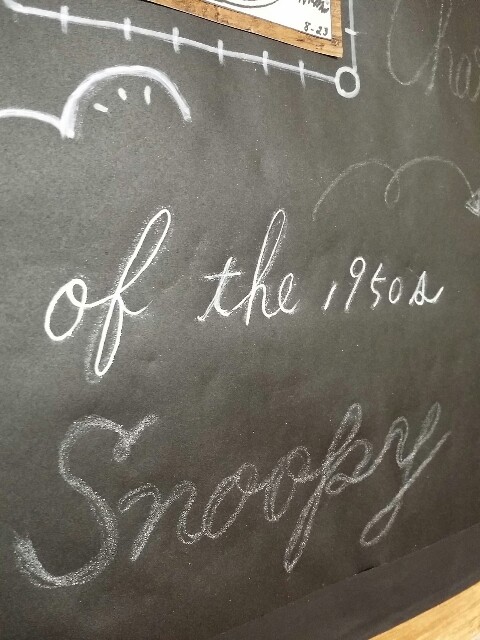 8-23
of the 1950s
Snoopy